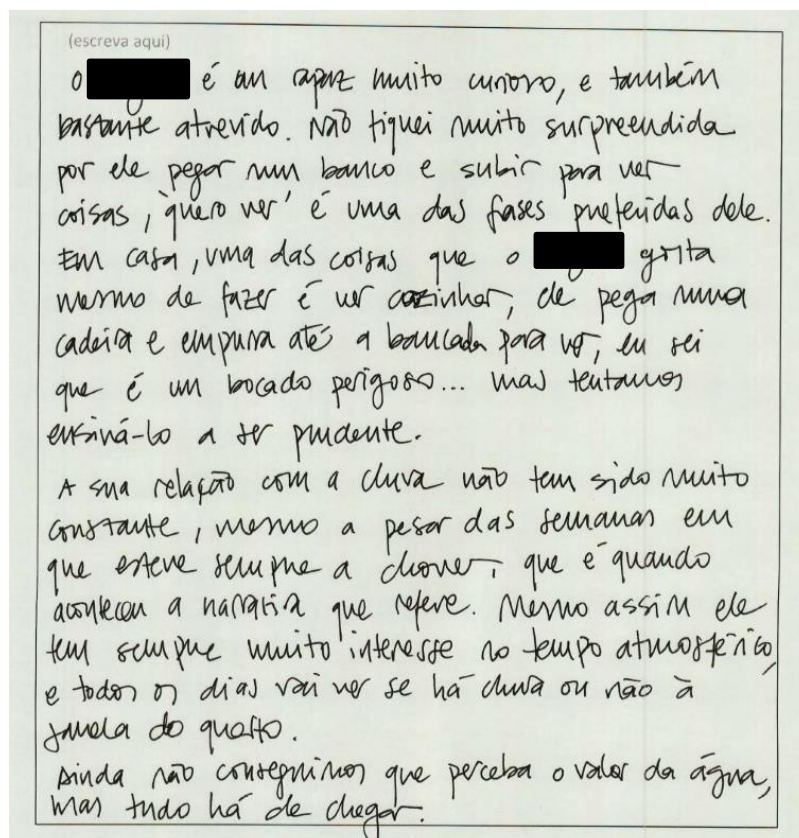 (escreva aqui)
O é um rapaz muito curioso, e também
bastante atrevido. Não fiquei muito surpreendida
por ele pegar num banco e subir para ver
coisas, 'quero ver' é uma das frases preferidas dele.
Em casa, uma das coisas que o gosta
mesmo de fazer é ver cozinhar, ele pega numa
cadeira e empurra até a bancada para ver, eu sei
que é um bocado perigoso... mas tentamos
ensiná-lo a ser prudente.
A sua relação com a chuva não tem sido muito
constante, mesmo a pesar das semanas em
que esteve sempre a chover, que é quando
aconteceu a narrativa que refere. Mesmo assim ele
tem sempre muito interesse no tempo atmosférico,
e todos os dias vai ver se há chuva ou não à
janela do quarto.
Ainda não conseguimos que perceba o valor da água,
mas tudo há de chegar.